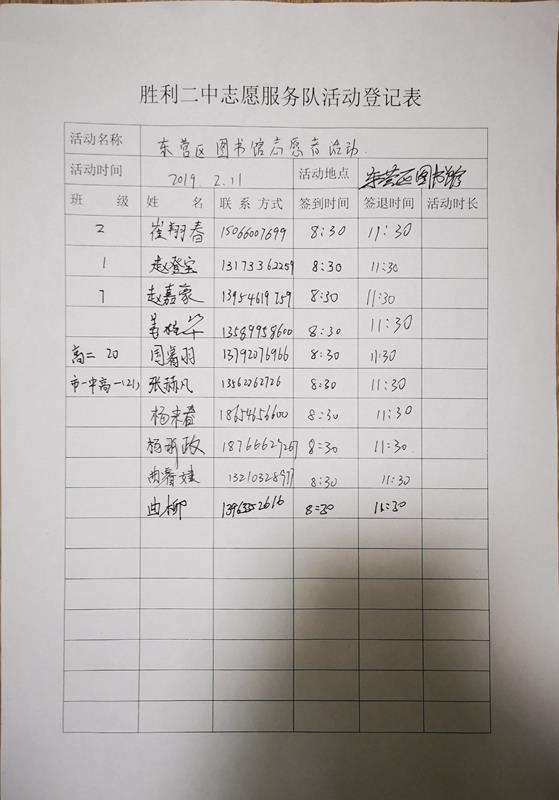 胜利二中志愿服务队活动登记表
活动名称 东营区图书馆志愿者活动
活动时间 2019.2.11 活动地点 东营区图书馆
班 级 姓 名 联系方式 签到时间 签退时间 活动时长
2 崔翔春 15066007699 8:30 11:30
1 赵登宝 13173362259 8:30 11:30
7 赵嘉豪 13954619759 8:30 11:30
13589958600 8:30 11:30
高二 20 周寤羽 13792076966 8:30 11:30
市一中高一(21) 张赫凡 13562262726 8:30 11:30
杨来春 18654656600 8:30 11:30
杨 政 18766627267 8:30 11:30
曲春婕 13210328977 8:30 11:30
曲柳 8:30 11:30